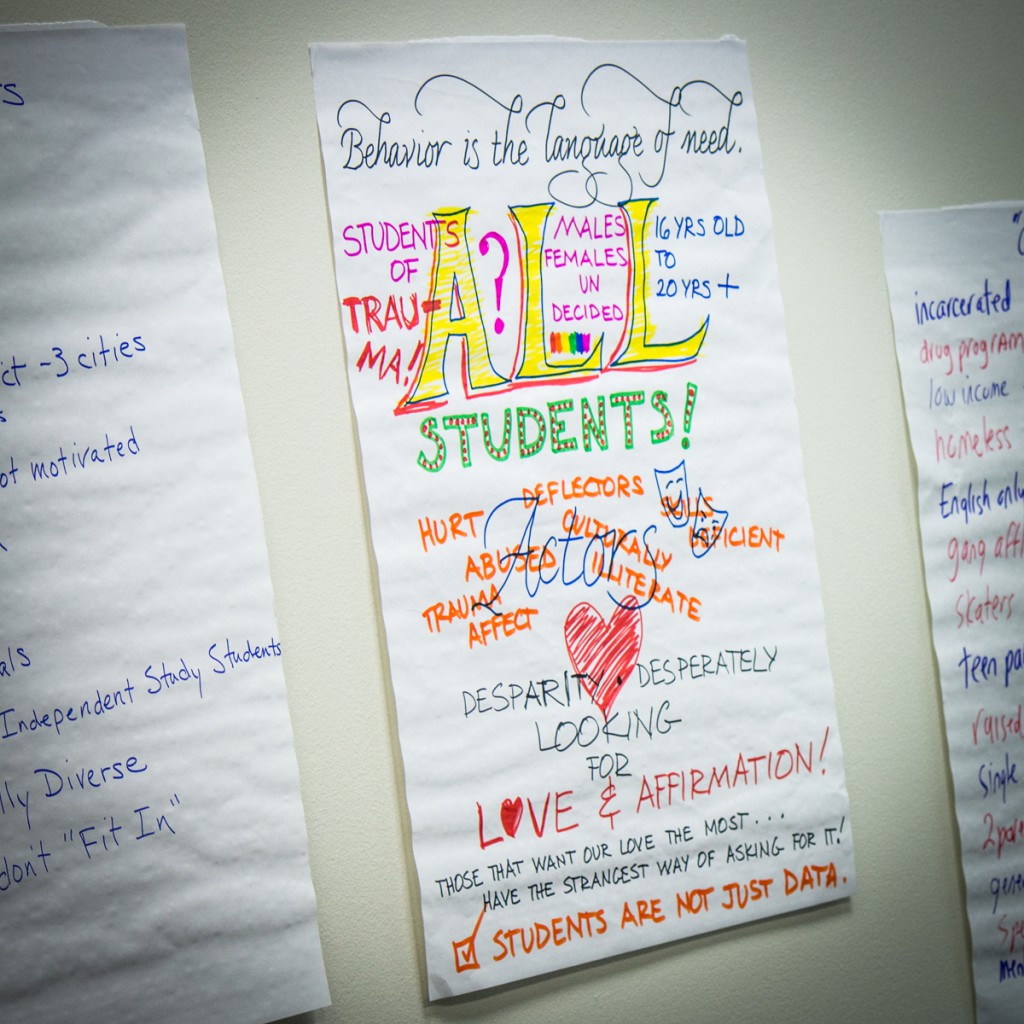 ct -3 cities
ot motivated
als
Independent Study Students
lly Diverse
don't "Fit In"
Behavior is the language of need.
STUDENTS
OF
TRAU-
MA!
ALL
?
MALES
FEMALES
UN
DECIDED
16 YRS OLD
TO
20 YRS +
STUDENTS!
DEFLECTORS
HURT
Actors
CULTURALLY
ILLITERATE
SKILLS
DEFICIENT
ABUSED
TRAUMA
AFFECT
DESPARITY • DESPERATELY
LOOKING
FOR
LOVE & AFFIRMATION!
THOSE THAT WANT OUR LOVE THE MOST...
HAVE THE STRANGEST WAY OF ASKING FOR IT!
STUDENTS ARE NOT JUST DATA.
incarcerated
drug program
low income
homeless
English only
gang affi
skaters
teen pa
raised
single
2 par